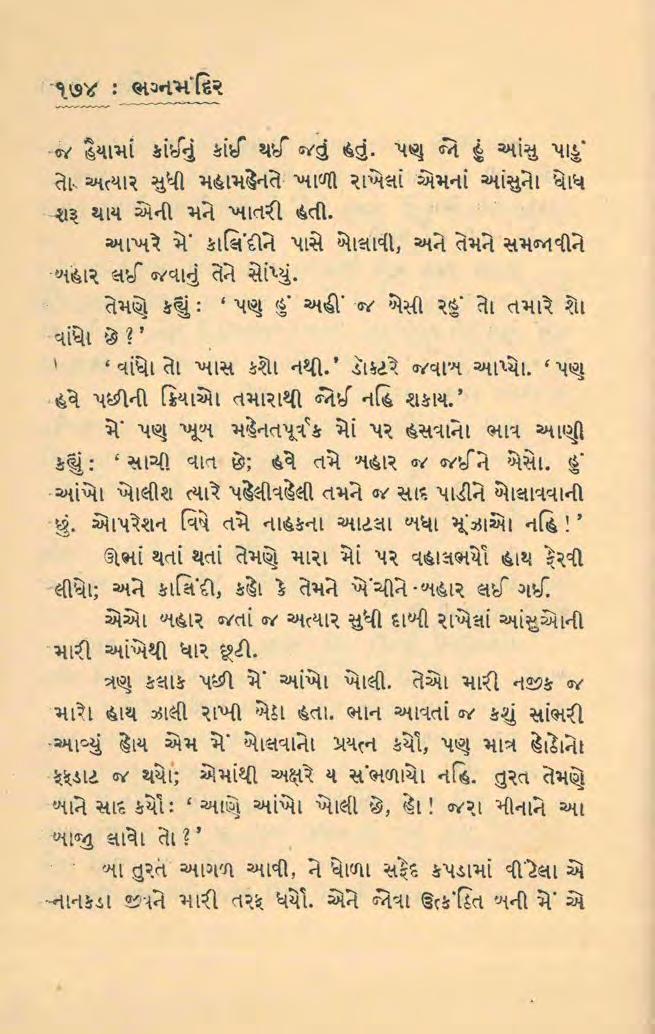 ૧૭૪ : ભગ્નમંદિર
જ હૈયામાં કાંઈનું કાંઈ થઈ જતું હતું. પણ જો હું આંસુ પાડું
તો અત્યાર સુધી મહામહેનતે ખાળી રાખેલાં એમનાં આંસુનો ધોધ
શરૂ થાય એની મને ખાતરી હતી.
આખરે મેં કાલિંદીને પાસે બોલાવી, અને તેમને સમજાવીને
બહાર લઈ જવાનું તેને સોંપ્યું.
તેમણે કહ્યું : ‘ પણ હું અહીં જ બેસી રહું તો તમારે શો
વાંધો છે ? ’
‘ વાંધો તો ખાસ કશો નથી. ’ ડૉક્ટરે જવાબ આપ્યો. ‘ પણ
હવે પછીની ક્રિયાઓ તમારાથી જોઈ નહિ શકાય. ’
મેં પણ ખૂબ મહેનતપૂર્વક મોં પર હસવાનો ભાવ આણી
કહ્યું : ‘ સાચી વાત છે; હવે તમે બહાર જ જઈને બેસો. હું
આંખો ખોલીશ ત્યારે પહેલીવહેલી તમને જ સાદ પાડીને બોલાવવાની
છું. ઓપરેશન વિષે તમે નાહકના આટલા બધા મૂંઝાઓ નહિ ! ’
ઊભાં થતાં થતાં તેમણે મારા મોં પર વહાલભર્યો હાથ ફેરવી
લીધો; અને કાલિંદી, કહો કે તેમને ખેંચીને બહાર લઈ ગઈ.
એઓ બહાર જતાં જ અત્યાર સુધી દાબી રાખેલાં આંસુઓની
મારી આંખેથી ધાર છૂટી.
ત્રણ કલાક પછી મેં આંખો ખોલી. તેઓ મારી નજીક જ
મારો હાથ ઝાલી રાખી બેઠા હતા. ભાન આવતાં જ કશું સાંભરી
આવ્યું હોય એમ મેં બોલવાનો પ્રયત્ન કર્યો, પણ માત્ર હોઠોનો
ફફડાટ જ થયો; એમાંથી અક્ષરે ય સંભળાયો નહિ. તુરત તેમણે
બાને સાદ કર્યો : ‘ આણે આંખો ખોલી છે, હો ! જરા મીનાને આ
બાજુ લાવો તો ? ’
બા તુરત આગળ આવી, ને ધોળા સફેદ કપડામાં વીંટેલા એ
નાનકડા જીવને મારી તરફ ધર્યો. એને જોવા ઉત્કંઠિત બની મેં એ